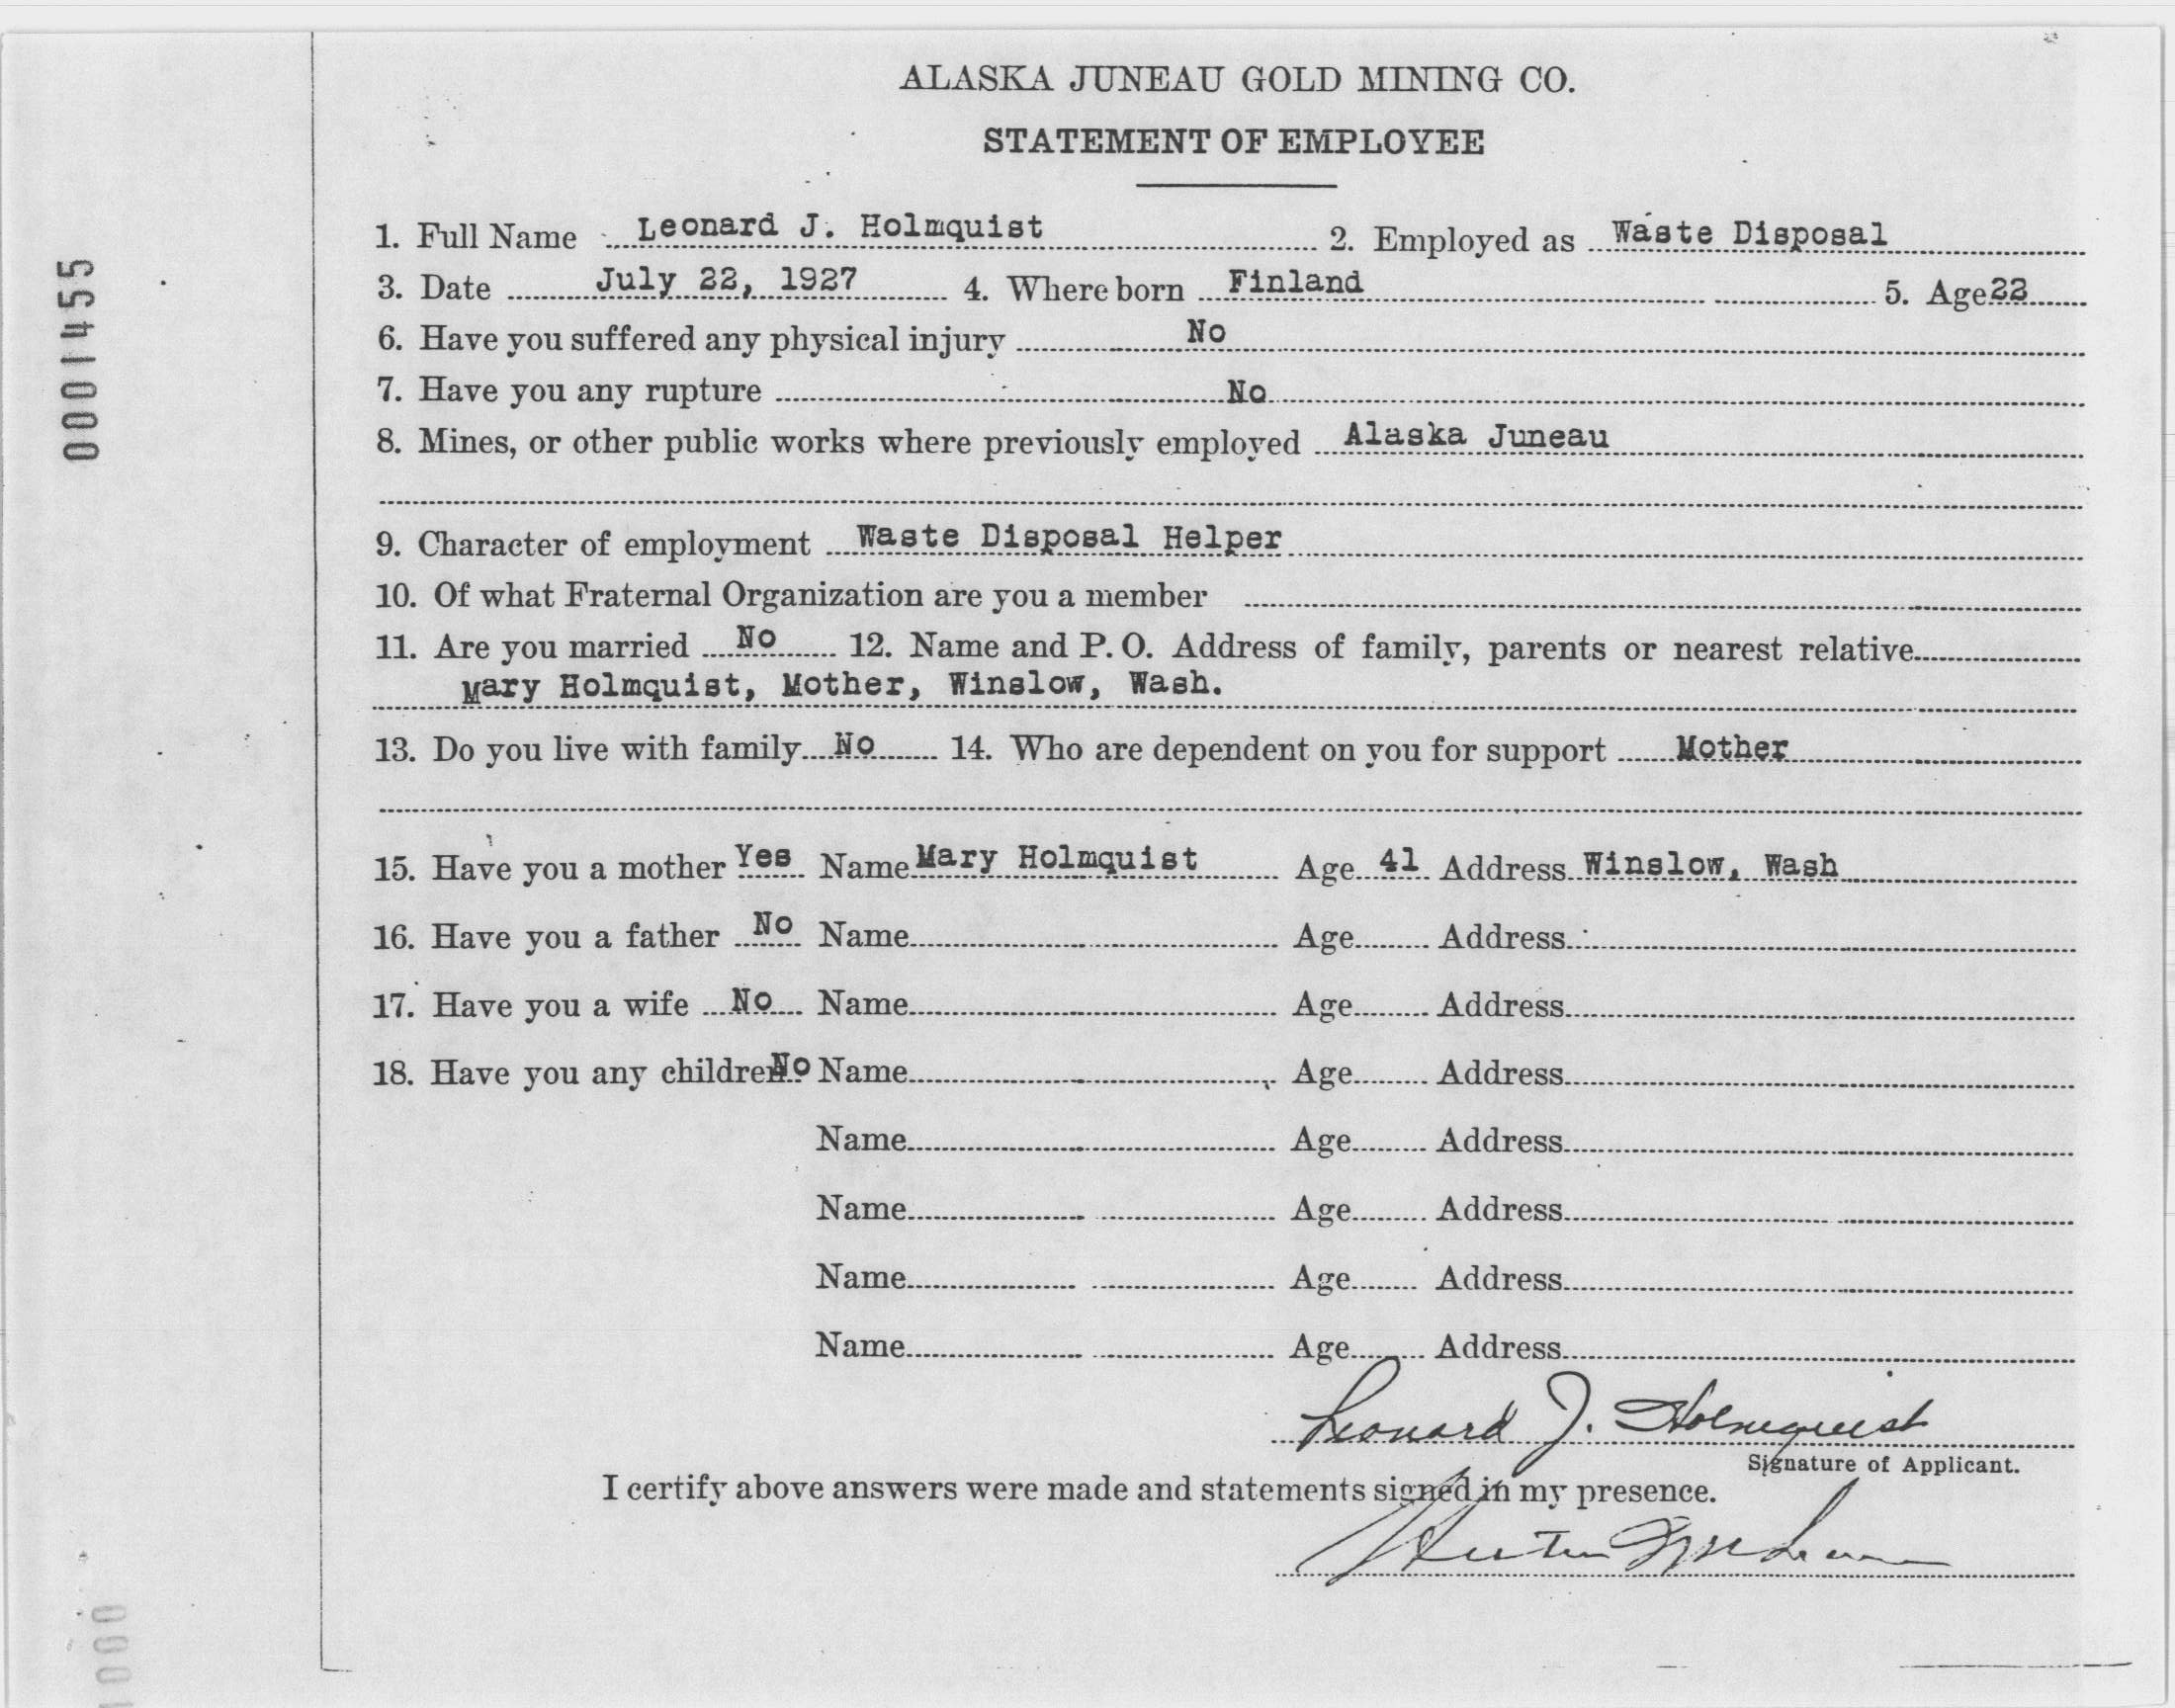 ALASKA JUNEAU GOLD MINING CO.
STATEMENT OF EMPLOYEE
1. Full Name Leonard J. Holmquist 2. Employed as Waste Disposal
3. Date July 22, 1927 4. Where born Finland 5. Age 22
6. Have you suffered any physical injury No
7. Have you any rupture No
8. Mines, or other public works where previously employed Alaska Juneau
9. Character of employment Waste Disposal Helper
10. Of what Fraternal Organization are you a member
11. Are you married No 12. Name and P. O. Address of family, parents or nearest relative
Mary Holmquist, Mother, Winslow, Wash.
13. Do you live with family No 14. Who are dependent on you for support Mother
15. Have you a mother Yes Name Mary Holmquist Age 41 Address Winslow, Wash
16. Have you a father No Name Age Address
17. Have you a wife No Name Age Address
18. Have you any children No Name Age Address
Name Age Address
Name Age Address
Name Age Address
Name Age Address
Leonard J. Holmquist
Signature of Applicant.
I certify above answers were made and statements signed in my presence.
0001455